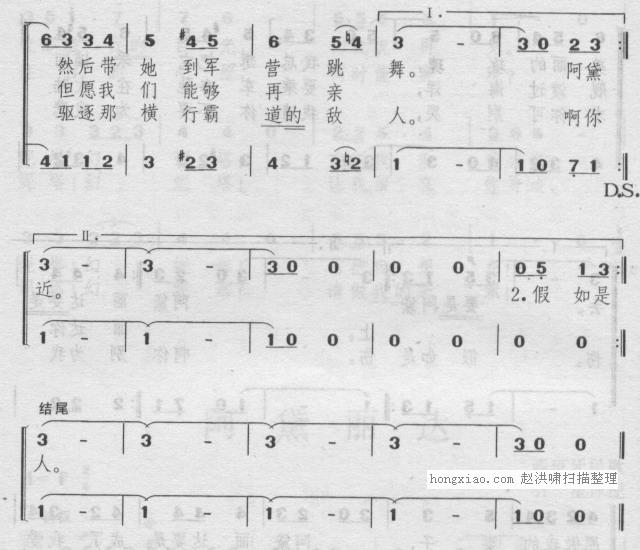 I.
6 3 3 4 | 5 #4 5 | 6 5 ♮4 | 3 - | 3 0 2 3 :‖
然后带 她 到军 营 跳 舞。 阿黛
但愿我 们 能够 再 亲
驱逐那 横 行霸 道的 敌 人。 啊你
4 1 1 2 | 3 #2 3 | 4 3 ♮2 | 1 - | 1 0 7 1 :‖
D.S.
II.
3 - | 3 - | 3 0 0 | 0 0 | 0 5 1 3 :‖
近。 2.假 如是
1 - | 1 - | 1 0 0 | 0 0 | 0 0 :‖
结尾
3 - | 3 - | 3 - | 3 - | 3 0 0 ‖
人。
hongxiao.com 赵洪啸扫描整理
1 - | 1 - | 1 - | 1 - | 1 0 0 ‖